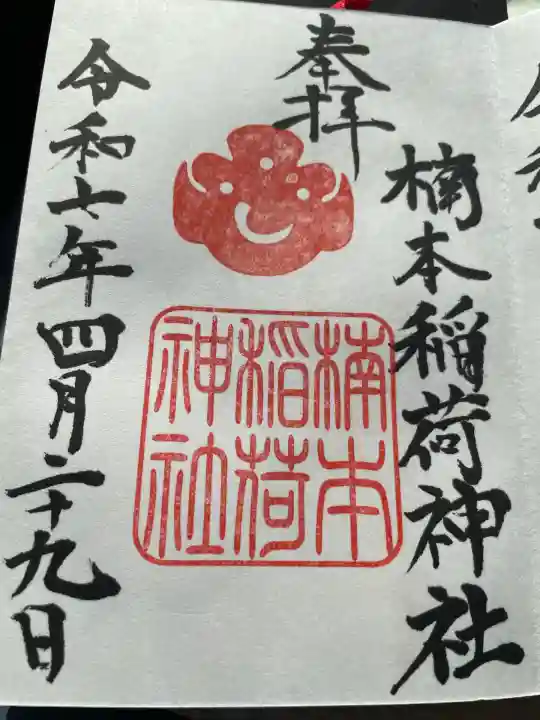 奉拝
楠本稲荷神社
楠本
稲荷
神社
令和六年四月二十九日